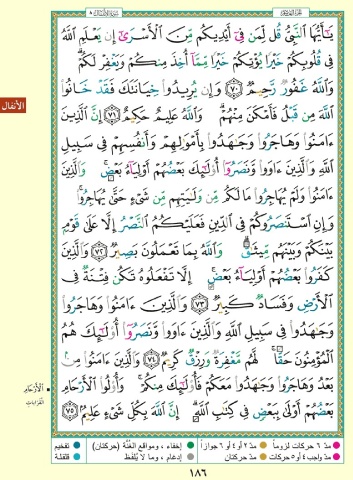 الجزء العاشر
سورة الأنفال ٨
يَـٰٓأَيُّهَا ٱلنَّبِىُّ قُل لِّمَن فِىٓ أَيْدِيكُم مِّنَ ٱلْأَسْرَىٰٓ إِن يَعْلَمِ ٱللَّهُ
فِى قُلُوبِكُمْ خَيْرًا يُؤْتِكُمْ خَيْرًا مِّمَّآ أُخِذَ مِنكُمْ وَيَغْفِرْ لَكُمْ
وَٱللَّهُ غَفُورٌ رَّحِيمٌ ٧٠ وَإِن يُرِيدُوا۟ خِيَانَتَكَ فَقَدْ خَانُوا۟
الأنفال
ٱللَّهَ مِن قَبْلُ فَأَمْكَنَ مِنْهُمْ وَٱللَّهُ عَلِيمٌ حَكِيمٌ ٧١ إِنَّ ٱلَّذِينَ
ءَامَنُوا۟ وَهَاجَرُوا۟ وَجَـٰهَدُوا۟ بِأَمْوَٰلِهِمْ وَأَنفُسِهِمْ فِى سَبِيلِ
ٱللَّهِ وَٱلَّذِينَ ءَاوَوا۟ وَّنَصَرُوٓا۟ أُو۟لَـٰٓئِكَ بَعْضُهُمْ أَوْلِيَآءُ بَعْضٍ وَٱلَّذِينَ
ءَامَنُوا۟ وَلَمْ يُهَاجِرُوا۟ مَا لَكُم مِّن وَلَـٰيَتِهِم مِّن شَىْءٍ حَتَّىٰ يُهَاجِرُوا۟
وَإِنِ ٱسْتَنصَرُوكُمْ فِى ٱلدِّينِ فَعَلَيْكُمُ ٱلنَّصْرُ إِلَّا عَلَىٰ قَوْمٍۭ
بَيْنَكُمْ وَبَيْنَهُم مِّيثَـٰقٌ وَٱللَّهُ بِمَا تَعْمَلُونَ بَصِيرٌ ٧٢ وَٱلَّذِينَ
كَفَرُوا۟ بَعْضُهُمْ أَوْلِيَآءُ بَعْضٍ إِلَّا تَفْعَلُوهُ تَكُن فِتْنَةٌ فِى
ٱلْأَرْضِ وَفَسَادٌ كَبِيرٌ ٧٣ وَٱلَّذِينَ ءَامَنُوا۟ وَهَاجَرُوا۟
وَجَـٰهَدُوا۟ فِى سَبِيلِ ٱللَّهِ وَٱلَّذِينَ ءَاوَوا۟ وَّنَصَرُوٓا۟ أُو۟لَـٰٓئِكَ هُمُ
ٱلْمُؤْمِنُونَ حَقًّا لَّهُم مَّغْفِرَةٌ وَرِزْقٌ كَرِيمٌ ٧٤ وَٱلَّذِينَ ءَامَنُوا۟ مِنۢ
بَعْدُ وَهَاجَرُوا۟ وَجَـٰهَدُوا۟ مَعَكُمْ فَأُو۟لَـٰٓئِكَ مِنكُمْ وَأُو۟لُوا۟ ٱلْأَرْحَامِ
بَعْضُهُمْ أَوْلَىٰ بِبَعْضٍ فِى كِتَـٰبِ ٱللَّهِ إِنَّ ٱللَّهَ بِكُلِّ شَىْءٍ عَلِيمٌۢ ٧٥
الأَرْحَامِ
القَرَابَاتِ
مدّ ٦ حركات لزوماً
مدّ ٢ أو ٤ أو ٦ جوازاً
إخفاء، ومواقع الغُنَّة (حركتان)
تفخيم
مدّ واجب ٤ أو ٥ حركات
مدّ حركتان
إدغام، وما لا يُلفَظ
قلقلة
١٨٦